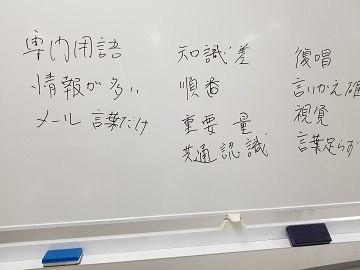 専門用語
情報が多い
メール 言葉だけ
知識差
順番
重要 量
共通認識
復唱
言いかえ確
視覚
言葉足らず